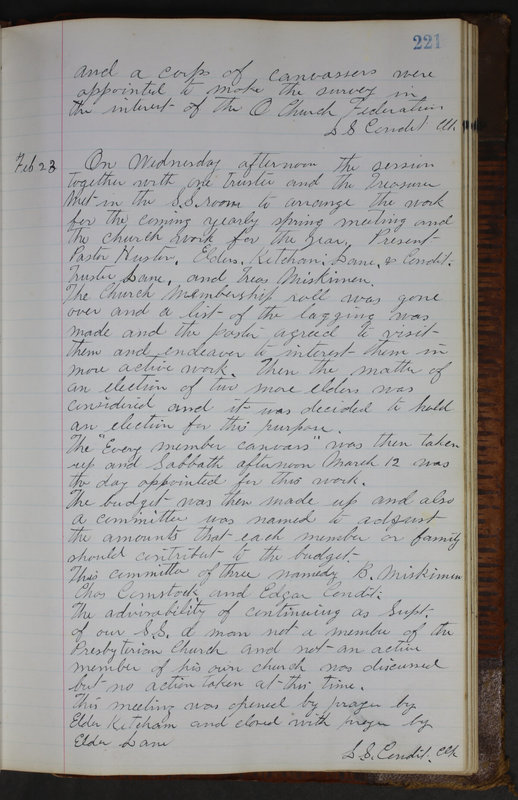 221
and a corps of canvassers were
appointed to make the survey in
the interest of the O Church Federation
S S Condit Clk.
Feb 23 On Wednesday afternoon the session
together with one trustee and the Treasurer
met in the S.S. room to arrange the work
for the coming yearly spring meeting and
the church work for the year. Present
Pastor Huster, Elders, Ketcham, Lane, & Condit.
Trustee Lane, and Treas Miskimen.
The Church Membership roll was gone
over and a list of the lagging was
made and the pastor agreed to visit
them and endeavor to interest them in
more active work. Then the matter of
an election of two more elders was
considered and it was decided to hold
an election for this purpose.
The "Every member canvass" was then taken
up and Sabbath afternoon March 12 was
the day appointed for this work.
The budget was then made up and also
a committee was named to adjust
the amounts that each member or family
should contribute to the budget.
This committee of three namely B. Miskimen
Chas Comstock and Edgar Condit.
The advisability of continuing as Supt.
of our S.S. a man not a member of the
Presbyterian Church and not an active
member of his own church was discussed
but no action taken at this time.
This meeting was opened by prayer by
Elder Ketcham and closed with prayer by
Elder Lane
S.S. Condit. Clk